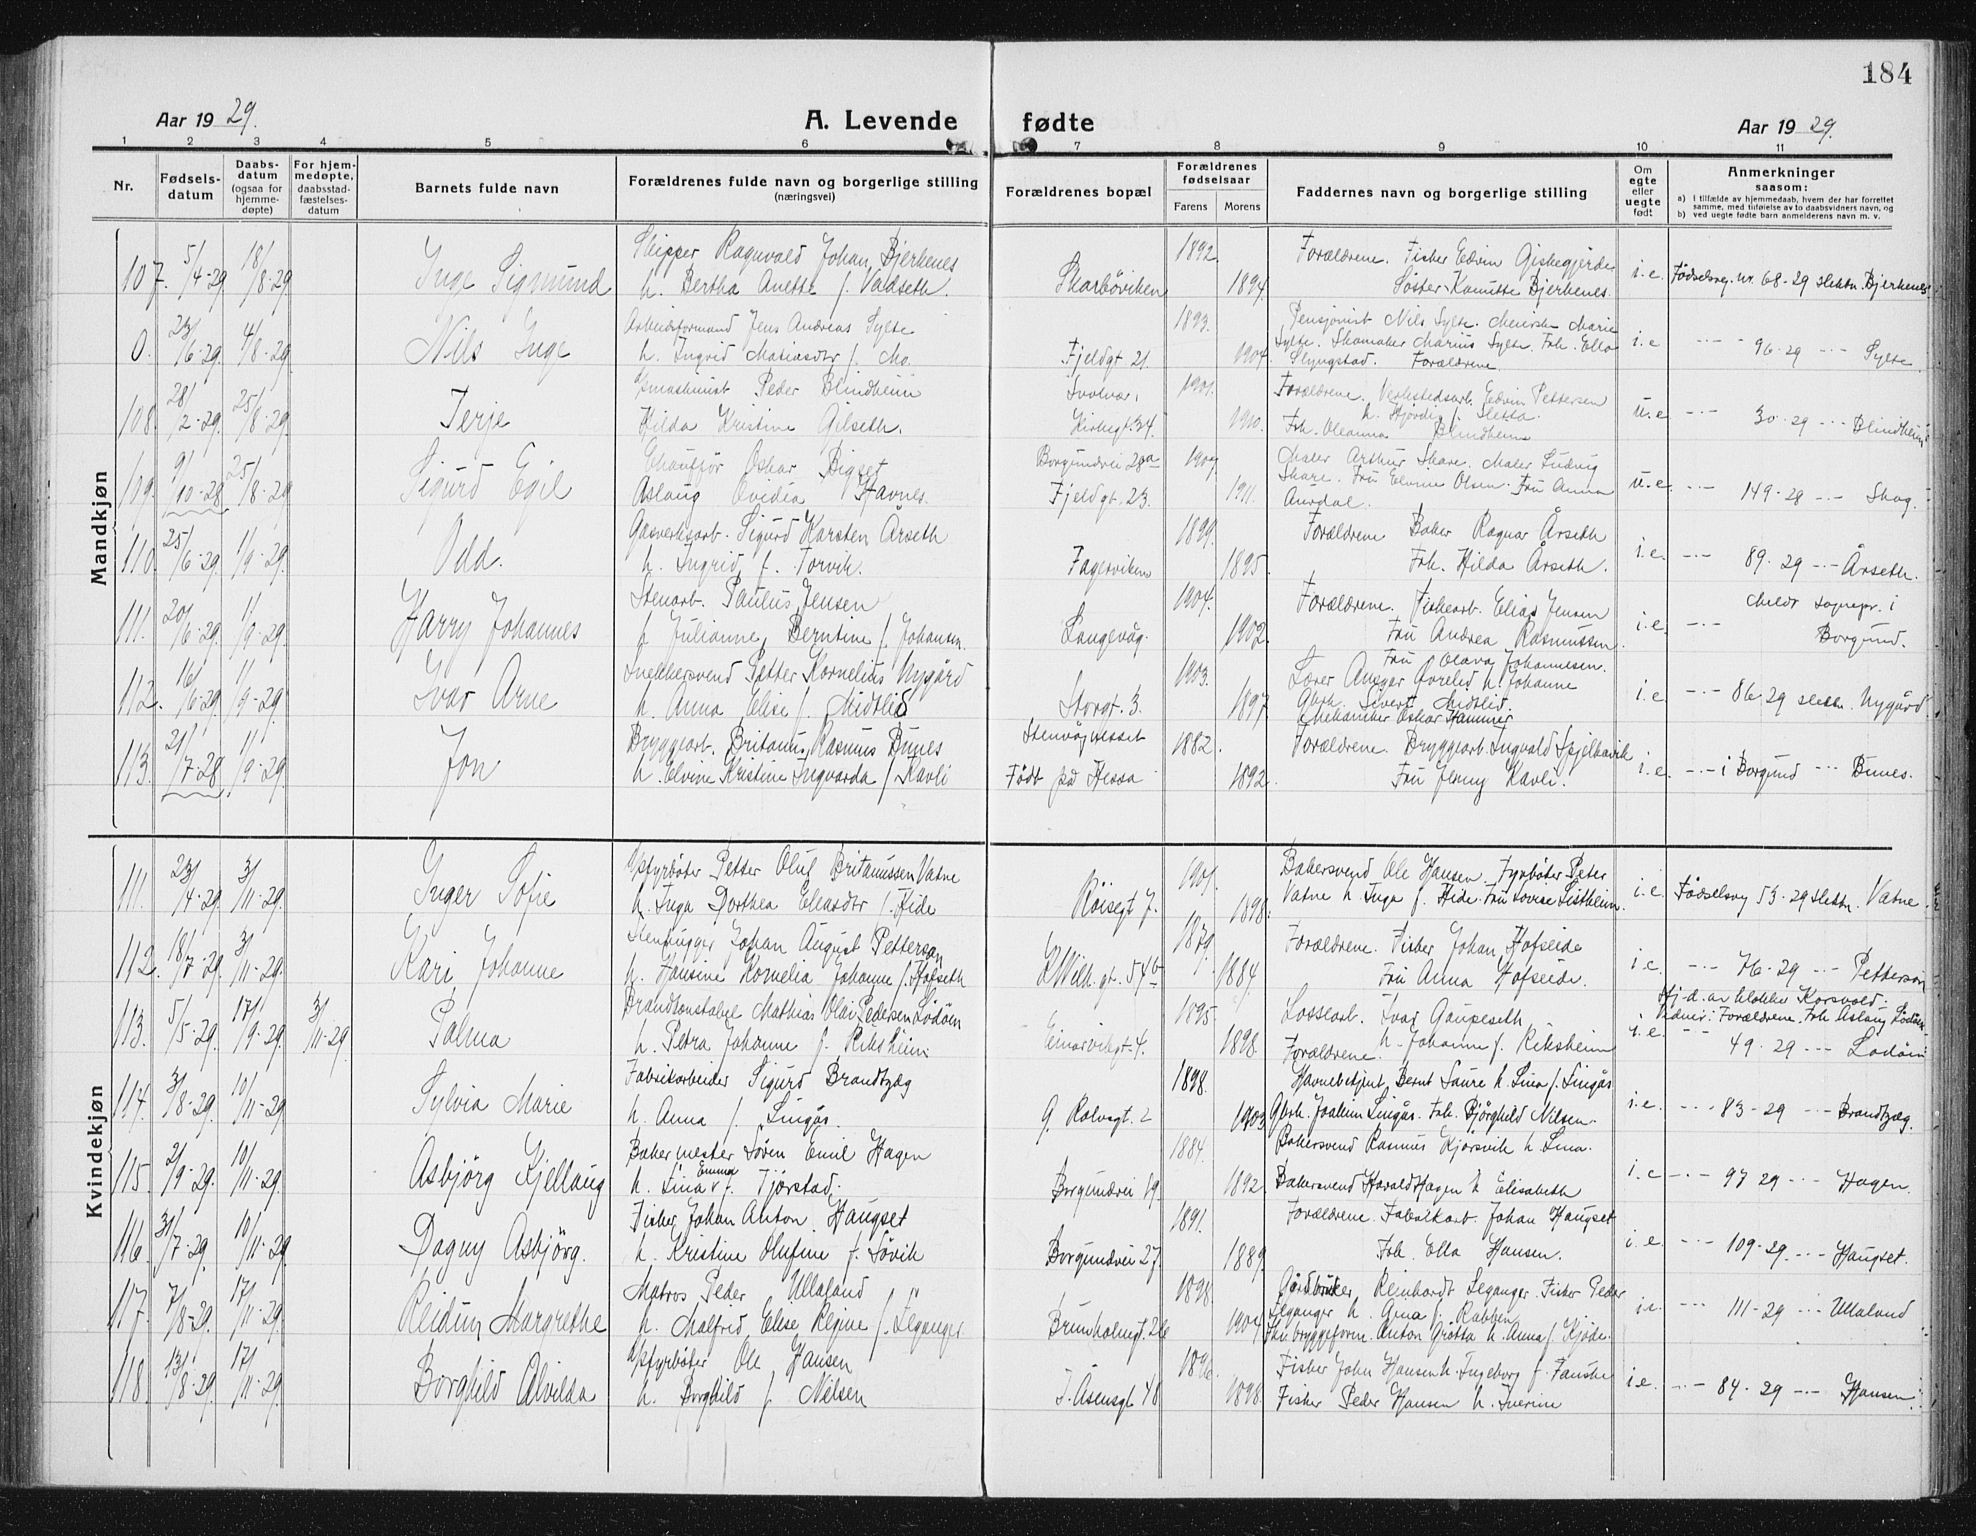 184
Aar 1929. A. Levende fødte Aar 1929.
1 2 3 4 5 6 7 8 9 10 11
Nr. Fødselsdatum Daabsdatum (ogsaa for hjemmedøpte) For hjemmedøpte, daabsstadfæstelsesdatum Barnets fulde navn Forældrenes fulde navn og borgerlige stilling (næringsvei) Forældrenes bopæl Forældrenes fødselsaar Farens Morens Faddernes navn og borgerlige stilling Om egte eller uegte født Anmerkninger saasom:
a) I tilfælde av hjemmedaab, hvem der har forrettet samme, med tilføielse av to daabsvidners navn, og
b) ved uegte fødte barn anmelderens navn m. v.
Mandkjøn
107. 5/4-29 18/8-29 Inge Sigmund Skipper Ragnvald Johan Bjerkenes
h. Bertha Anette f. Valdseth. Skarbøviken 1892. 1894. Forældrene. Fisker Edvin Giskegjerde
Søster Kamitte Bjerkenes. i.e. Fødselsreg. nr. 68-29 slektn. Bjerkenes
0. 23/6-29 4/8-29 Nils Inge Arbeidsformand Jens Andreas Sylte
h. Ingrid Matiasdtr f. Mo. Fjeldgt 21. 1893. 1904. Pensjonist Nils Sylte. Marie
Sylte. Skomaker Marius Sylte. Frk. Ella
Slyngstad. Forældrene. i.e. 96-29 Sylte
108. 28/2-29. 25/8-29 Terje Peder Blindheim
Hilda Kristine Gilseth. Svolvær,
Kirkegt. 34. 1901. 1910. Forældrene. Verkstedsarb. Edvin Pettersen
h. Hjördis f. Sletta.
Frk. Oleanna Blindheim u.e. 30-29 Blindheim
109. 9/10-28 25/8-29 Sigurd Egil Chauffør Oskar Bigset
Aslaug Ovidia Havnes. Borgundvei 28a
Fjeldgt. 23. 1907. 1911. Maler Arthur Skare. Maler Ludvig
Skare. Fru Elvine Olsen. Fru Anna
Aurdal. u.e. 149-28 Skog.
110. 25/6-29 1/9-29. Odd. Gasverksarb. Sigurd Karsten Årseth
h. Ingrid f. Torvik. Fagerviken 1899. 1895. Forældrene Baker Ragnar Årseth
Frk. Hilda Årseth. i.e. 89-29 Årseth.
111. 20/6-29. 1/9-29. Harry Johannes Stenarb. Paulus Jensen
h Julianne Berntine f. Johansen Langevåg. 1904. 1902. Forældrene. Fiskearb. Elias Jensen
Fru Andrea Rasmussen.
Fru Olava Johannesen. i.e. Meldt sognepr. i
Borgund.
112. 16/6-29. 1/9-29. Ivar Arne Snekkersvend Petter Kornelius Nygård
h. Anna Elise f. Midtlid Storgt. 3. 1903. 1897. Lærer Ansgar Øvrelid h. Johanne
Gbrk. Sivert Midtlid.
Mekaniker Oskar Hammer i.e. 86-29 slektn. Nygård
113. 21/7-28 1/9-29. Jon Bryggearb. Britanus Rasmus Bunes
h. Elvine Kristine Ingvarda f. Kavli Stenvågnesset
Født på Hessa 1882. 1892. Forældrene. Bryggearb. Ingvald Spjelkavik
Fru Jenny Kavli. i.e. i Borgund Bunes.
Kvindekjøn
111. 23/4-29. 3/11-29. Inger Sofie Fyrbøter Petter Oluf Britanussen Vatne
h. Inga Dorthea Eliasdtr f. Hide Røisegt 7. 1901. 1898. Bakersvend Ole Hansen. Fyrbøter Peter
Vatne h Inga f. Hide. Fru Lovise Listheim. i.e. Fødselsreg 53-29 slektn. Vatne.
112. 18/7-29. 3/11-29. Kari Johanne Stenhugger Johan August Pettersen
h. Hansine Kornelia Johanne f. Hofseth K.Wilh. gt. 54b 1879. 1884. Forældrene. Fisker Johan Hofseide
Fru Anna Hofseide. i.e. 76-29 Petterson
113. 5/5-29. 17/9-29. 3/11-29. Palma Brandkonstabel Mathias Olai Pedersen Lødøen
h. Petra Johanne f. Riksheim Einarvikgt. 4. 1895. 1898. Lossearb. Ivar Gaupeseth
h. Johanne f. Riksheim
Forældrene. i.e. Hj.d. av klokker Korsvold.
Vidner: Forældrene. Frk Aslaug Lødøen
49-29 Lodøen
114. 3/8-29. 10/11-29. Sylvia Marie Fabrikarbeider Sigurd Brandtzæg
h. Anna f. Lingås. G. Rolvsgt. 2 1898. 1903 Havnebetjent Bernt Saure h. Lina f. Lingås
Gbrk. Joakim Lingås. Frk. Bjørghild Nilsen. i.e. 83-29 Brandtzæg.
115. 2/9-29. 10/11-29. Asbjörg Kjellaug Bakermester Søren Emil Hagen
h. Lina Emma f. Tjørstad. Borgundvei 19. 1884. 1892. Bakersvend Rasmus Kjørsvik h. Lina.
Bakersvend Harald Hagen h Elisabeth i.e 97 29 Hagen.
116. 31/7-29. 10/11-29. Dagny Asbjörg. Fisker Johan Anton Haugset
h. Kristine Olufine f. Søvik Borgundvei 27. 1891. 1889. Forældrene. Fabrikarb. Johan Haugset
Frk. Ella Hansen. i.e. 109-29 Haugset.
117. 7/8-29. 17/11-29. Reidun Margrethe Matros Peder Ullaland
h. Malfrid Elise Regine f. Leganger Brunholmgt. 26 1898. 1904 Gårdbruker Reinhardt Leganger. Fisker Peder
Leganger h. Anna f. Rabben
Fru bryggeform. Anton Grøtta h. Anna f. Kjøde. i.e. 111-29 Ullaland
118. 13/8-29. 17/11-29. Borghild Alvilda Fyrbøter Ole Hansen
h. Borghild f. Nilsen J. Åsensgt 48 1896. 1898. Fisker John Hansen h. Ingeborg f. Fauske
Fisker Peder Hansen h. Sverine i.e. 84-29 Hansen